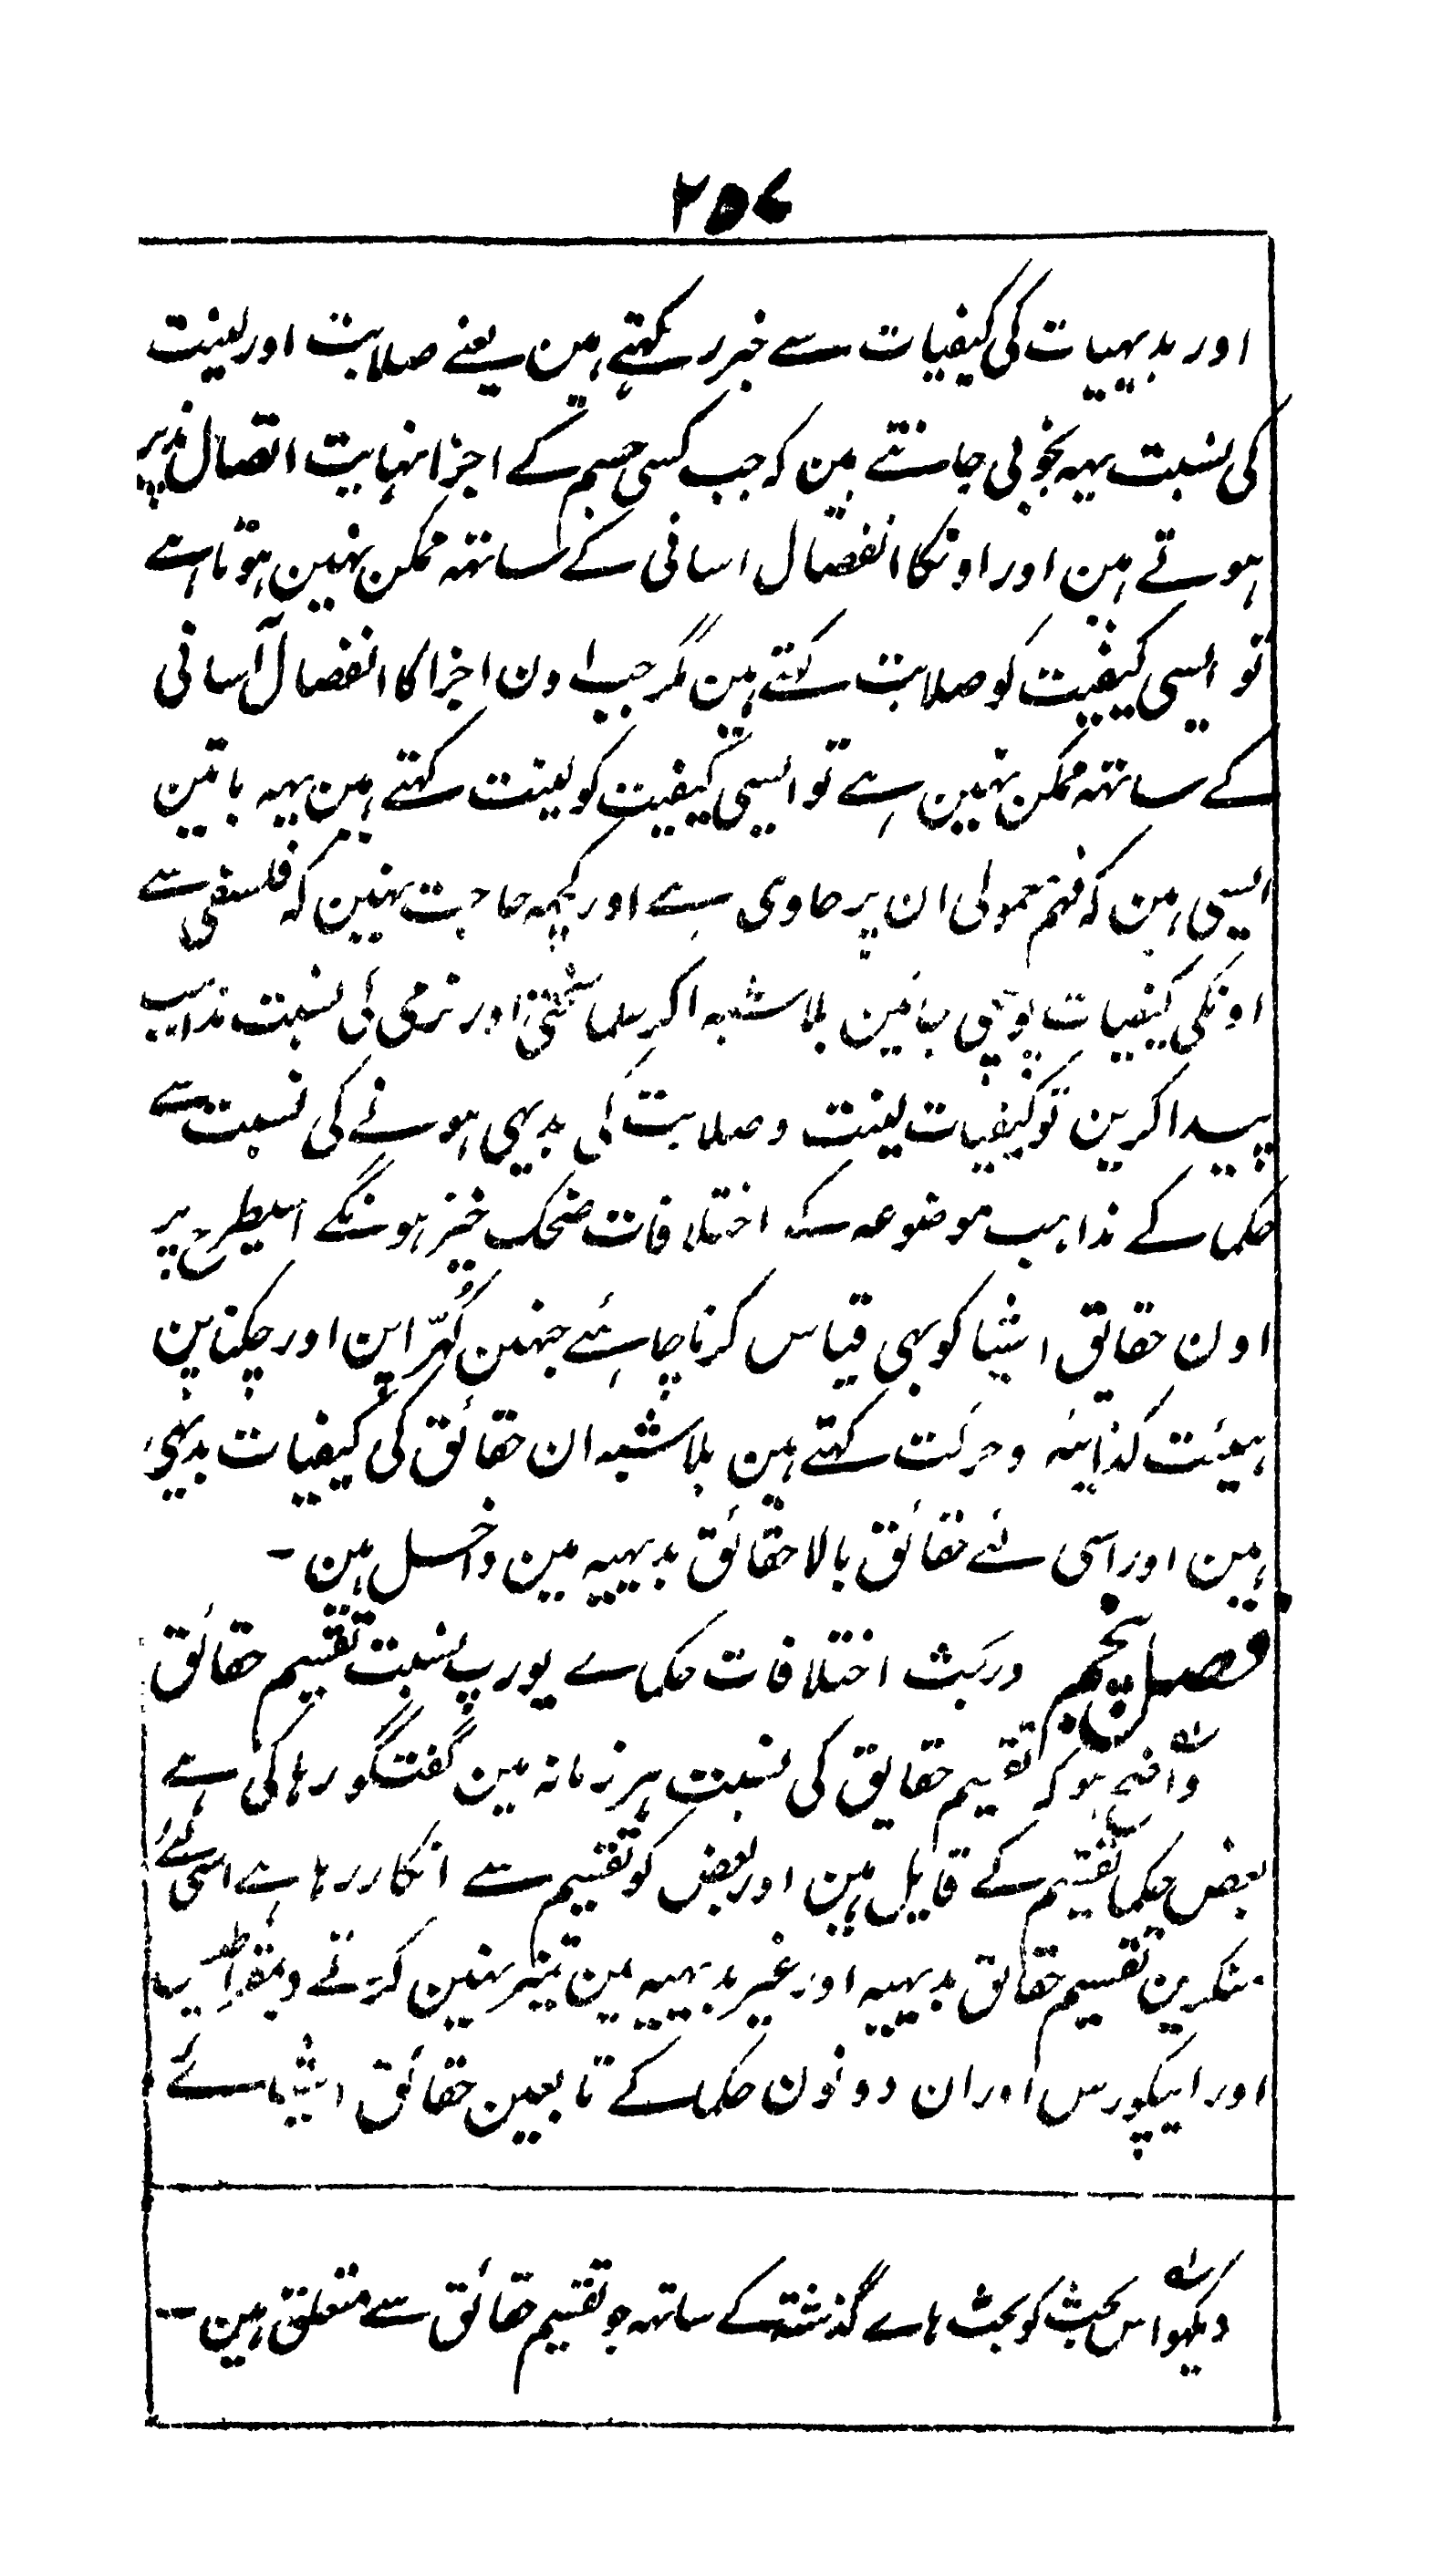 ۲۵۷
اور بدیہیات کی کیفیات سے خبر رکہتے ہین یعنے صلابت اور لینت
کی نسبت یہہ بخوبی جانتے ہین کہ جب کسی جسم کے اجزا نہایت اتصال پذیر
ہوتے ہین اور اونکا انفصال اسانی کے ساتہہ ممکن نہین ہوتا ہے
تو ایسی کیفیت کو صلابت کہتے ہین مگر جب اون اجزا کا انفصال آسانی
کے ساتہہ ممکن نہین ہے تو ایسی کیفیت کو لینت کہتے ہین یہہ باتین
ایسی ہین کہ فہم معمولی ان پر حاوی ہے اور کچہہ حاجت نہین کہ فلسفی سے
اونکی کیفیات پوچہی جائین بلا شبہہ اگر حکما سختی اور نرمی کی نسبت مذاہب
پیدا کرین تو کیفیات لینت و صلابت کی بدیہی ہونے کی نسبت سے
حکما کے مذاہب موضوعہ کے اختلافات ضحک خیز ہونگے اسیطرح پر
اون حقایق اشیا کو بہی قیاس کرنا چاہئے جنہین کُہرّاپن اور چکناپن
ہیئت کذائیہ و حرکت کہتے ہین بلا شبہہ ان حقائق کی کیفیات بدیہی
ہین اور اسی لئے حقائق بالا حقائق بدیہیہ مین داخل ہین ۔
فصل پنجم در بحث اختلافات حکماے یورپ بنسبت تقسیم حقائق
واضح ہو کہ تقسیم حقایق کی نسبت ہر زمانہ مین گفتگو رہا کی ہے
بعض حکما تقسیم کے قایل ہین اور بعض کو تقسیم سے انکار رہا ہے اسی لئے
منکرین تقسیم حقائق بدیہیہ اور غیر بدیہیہ مین تمیز نہین کرتے دیمقراطیس
اور ایپکورس اور ان دونون حکما کے تابعین حقائق اشیا کے
دیکہو اس بحث کو بحث ہاے گذشتہ کے ساتہہ جو تقسیم حقائق سے متعلق ہین ۔